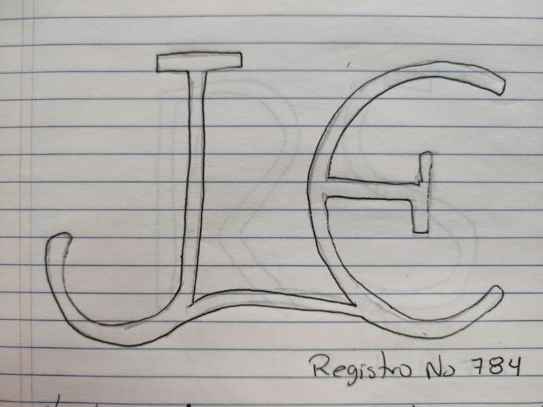 JE
Registro No 784